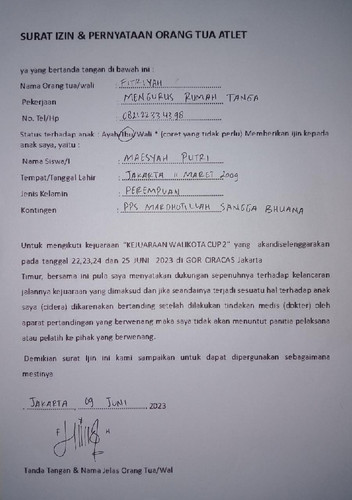 SURAT IZIN & PERNYATAAN ORANG TUA ATLET
ya yang bertanda tangan di bawah ini :
Nama Orang tua/wali : FITRIYAH
Pekerjaan : MENGURUS RUMAH TANGA
No. Tel/Hp : 082122334398
Status terhadap anak : Ayah/Ibu/Wali * (coret yang tidak perlu) Memberikan ijin kepada
anak saya, yaitu :
Nama Siswa/I : MAESYAH PUTRI
Tempat/Tanggal Lahir : JAKARTA 11 MARET 2009
Jenis Kelamin : PEREMPUAN
Kontingen : PPS MARDHOTILLAH SANGGA BHUANA
Untuk mengikuti kejuaraan "KEJUARAAN WALIKOTA CUP 2" yang akandiselenggarakan
pada tanggal 22,23,24 dan 25 JUNI 2023 di GOR CIRACAS Jakarta
Timur, bersama ini pula saya menyatakan dukungan sepenuhnya terhadap kelancaran
jalannya kejuaraan yang dimaksud dan jika seandainya terjadi sesuatu hal terhadap anak
saya (cidera) dikarenakan bertanding setelah dilakukan tindakan medis (dokter) oleh
aparat pertandingan yang berwenang maka saya tidak akan menuntut panitia pelaksana
atau pelatih ke pihak yang berwenang.
Demikian surat Ijin ini kami sampaikan untuk dapat dipergunakan sebagaimana
mestinya
JAKARTA 09 JUNI 2023
Tanda Tangan & Nama Jelas Orang Tua/Wal